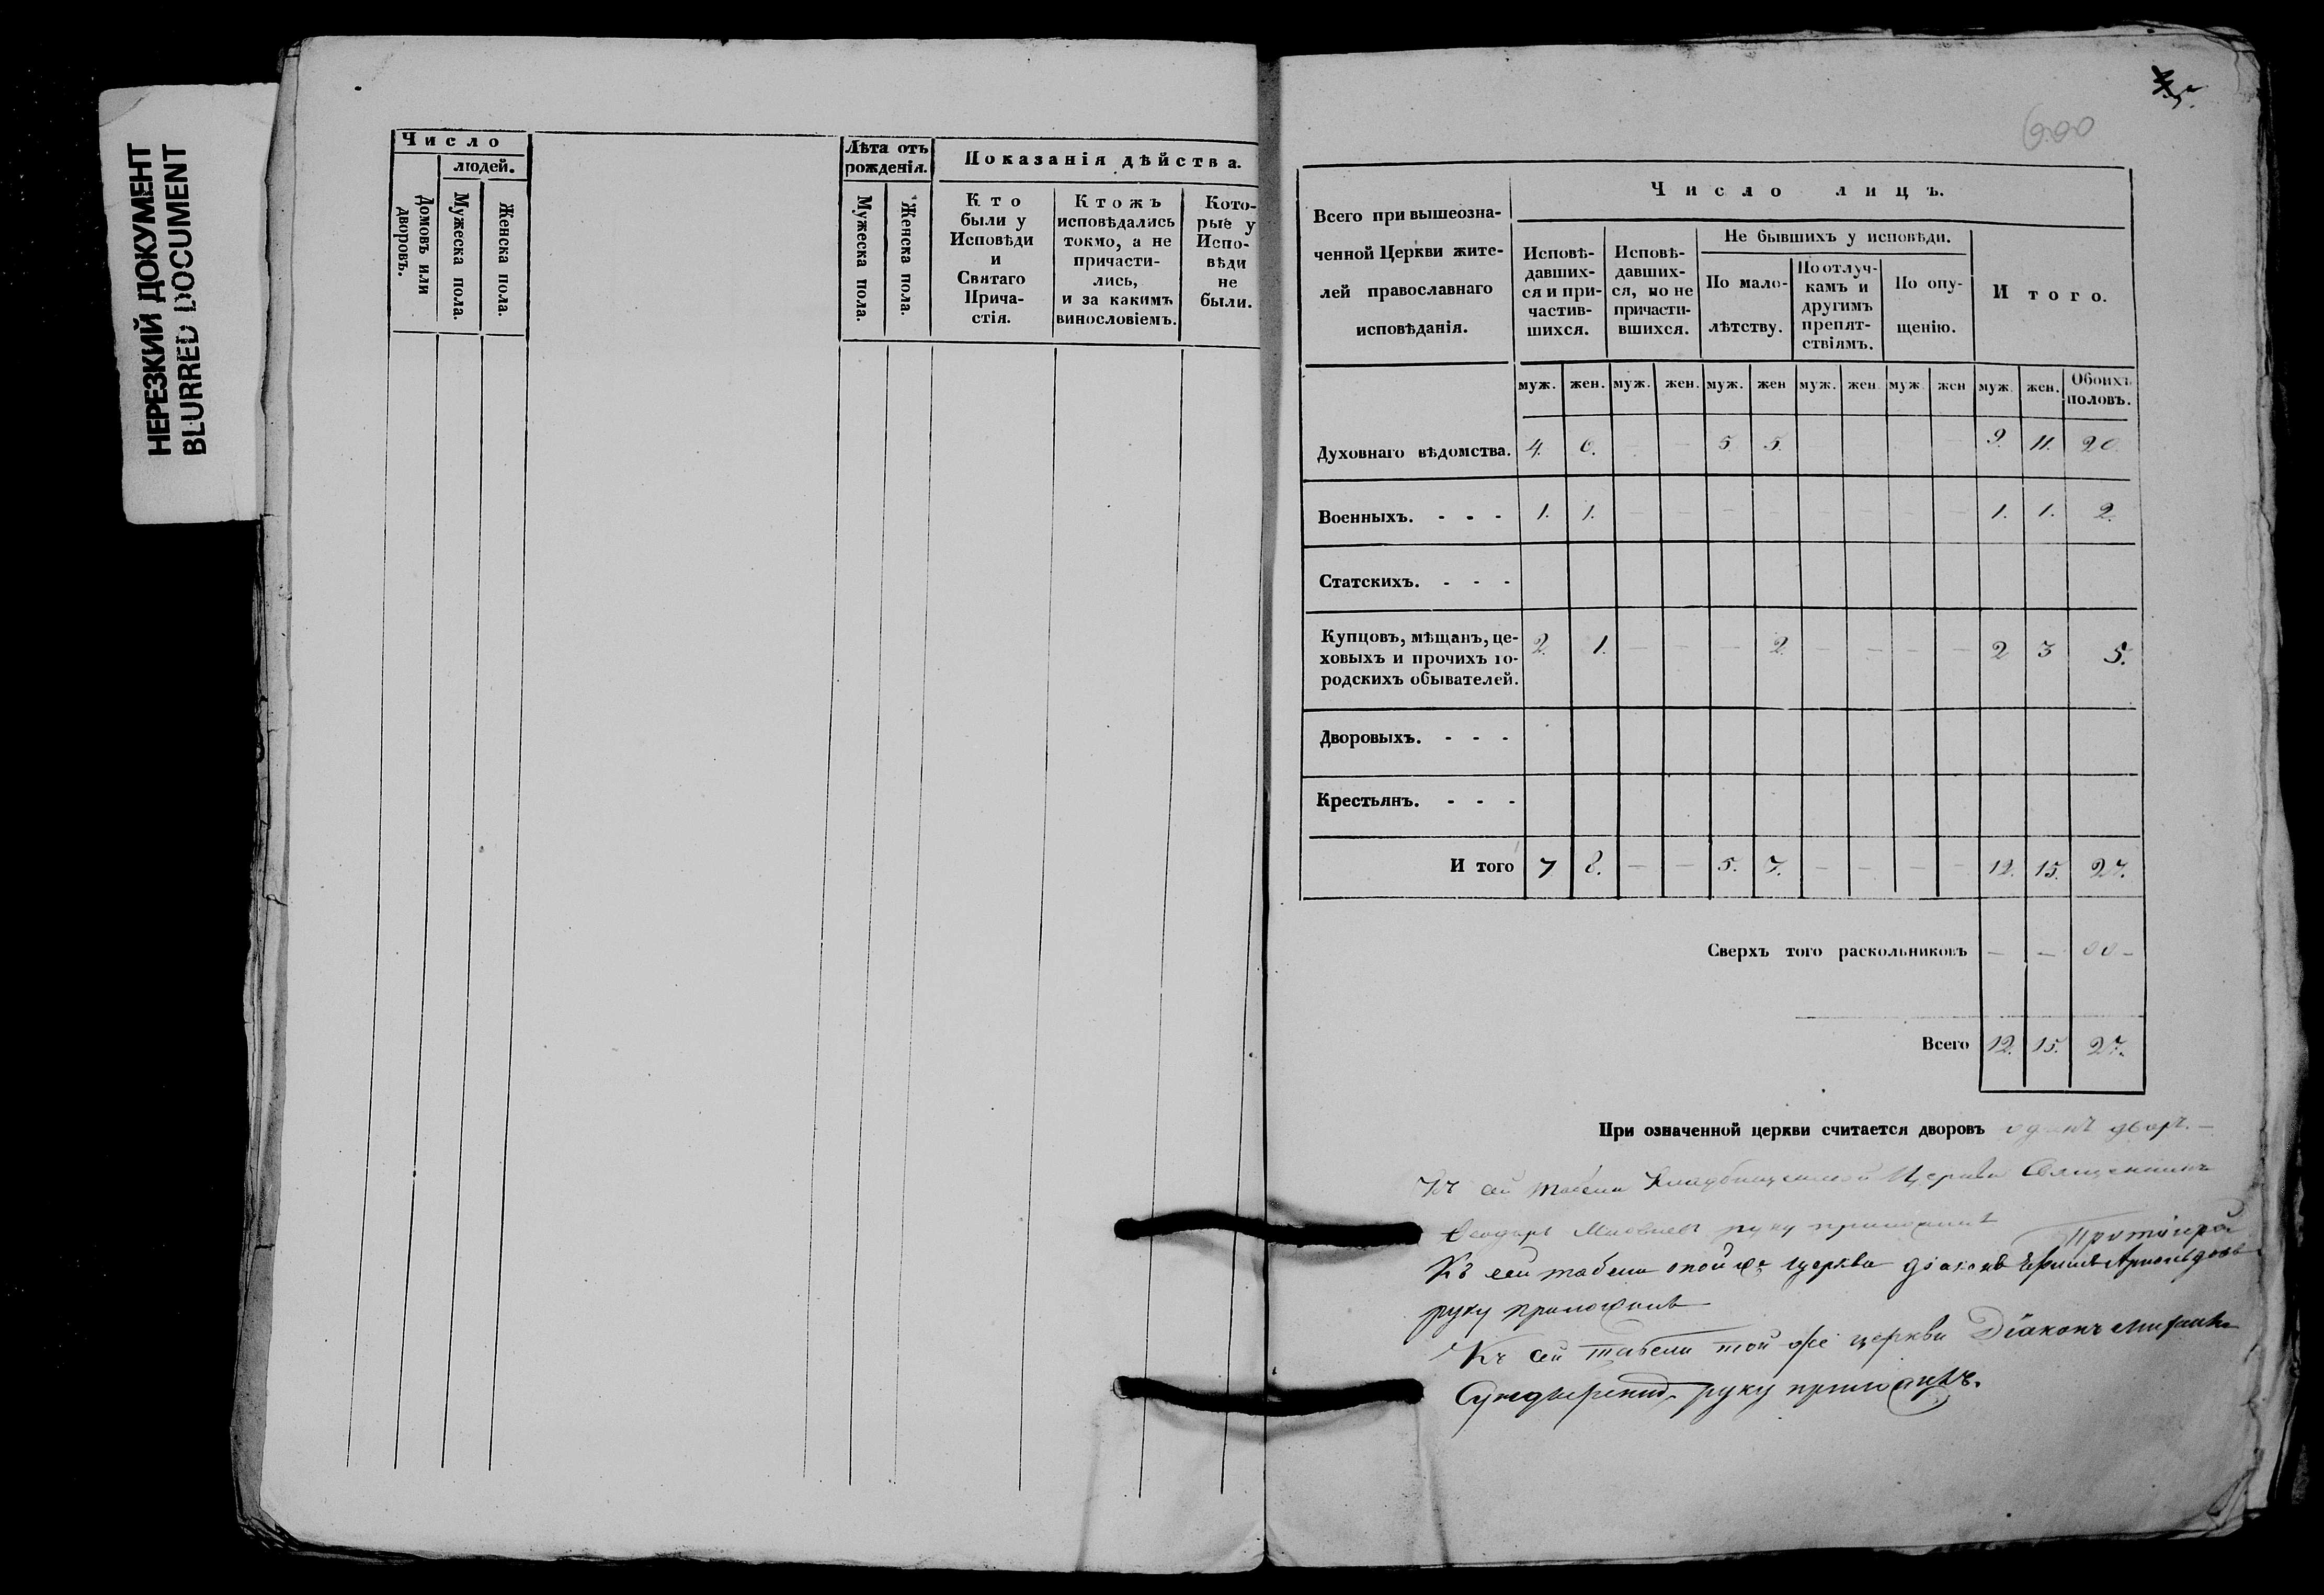 НЕРЕЗКИЙ ДОКУМЕНТ
BLURRED DOCUMENT
Число
людей.
Домовъ или дворовъ.
Мужеска пола.
Женска пола.
Лѣта отъ рожденія.
Мужеска пола.
Женска пола.
Показанія дѣйства.
Кто были у Исповѣди и Святаго Прича-стія.
Ктожъ исповѣдались токмо, а не причасти-лись, и за какимъ винословіемъ.
Кото-рые у Испо-вѣди не были.
Всего при вышеозна-
ченной Церкви жите-
лей православнаго
исповѣданія.
Число лицъ.
Исповѣ-давших-ся и при-частив-шихся.
Исповѣ-давших-ся, но не причасти-вшихся.
Не бывшихъ у исповѣди.
По мало-лѣтству.
По отлуч-камъ и другимъ препят-ствіямъ.
По опу-щенію.
И того.
муж. жен. муж. жен. муж. жен муж. жен. муж. жен муж. жен. Обоихъ половъ.
Духовнаго вѣдомства. 4. 6. - - 5. 5. - 9. 11. 20.
Военныхъ. - - - 1. 1. - - - - - - - - 1. 1. 2.
Статскихъ. - - -
Купцовъ, мѣщанъ, це-
ховыхъ и прочихъ го-
родскихъ обывателей. 2. 1. - - - 2. - - - - 2 3 5.
Дворовыхъ. - - -
Крестьянъ. - - -
И того 7 8. - - 5. 7. - - - - 12. 15. 27.
Сверхъ того раскольниковъ - - 00 -
Всего 12. 15. 27.
При означенной церкви считается дворовъ одинъ дворъ. -
Къ сей табели Кладбищенской Церкви Священникъ
руку приложилъ
Къ сей табели тойже церкви діаконъ
руку приложилъ
Къ сей табели той же церкви Діаконъ
руку приложилъ.